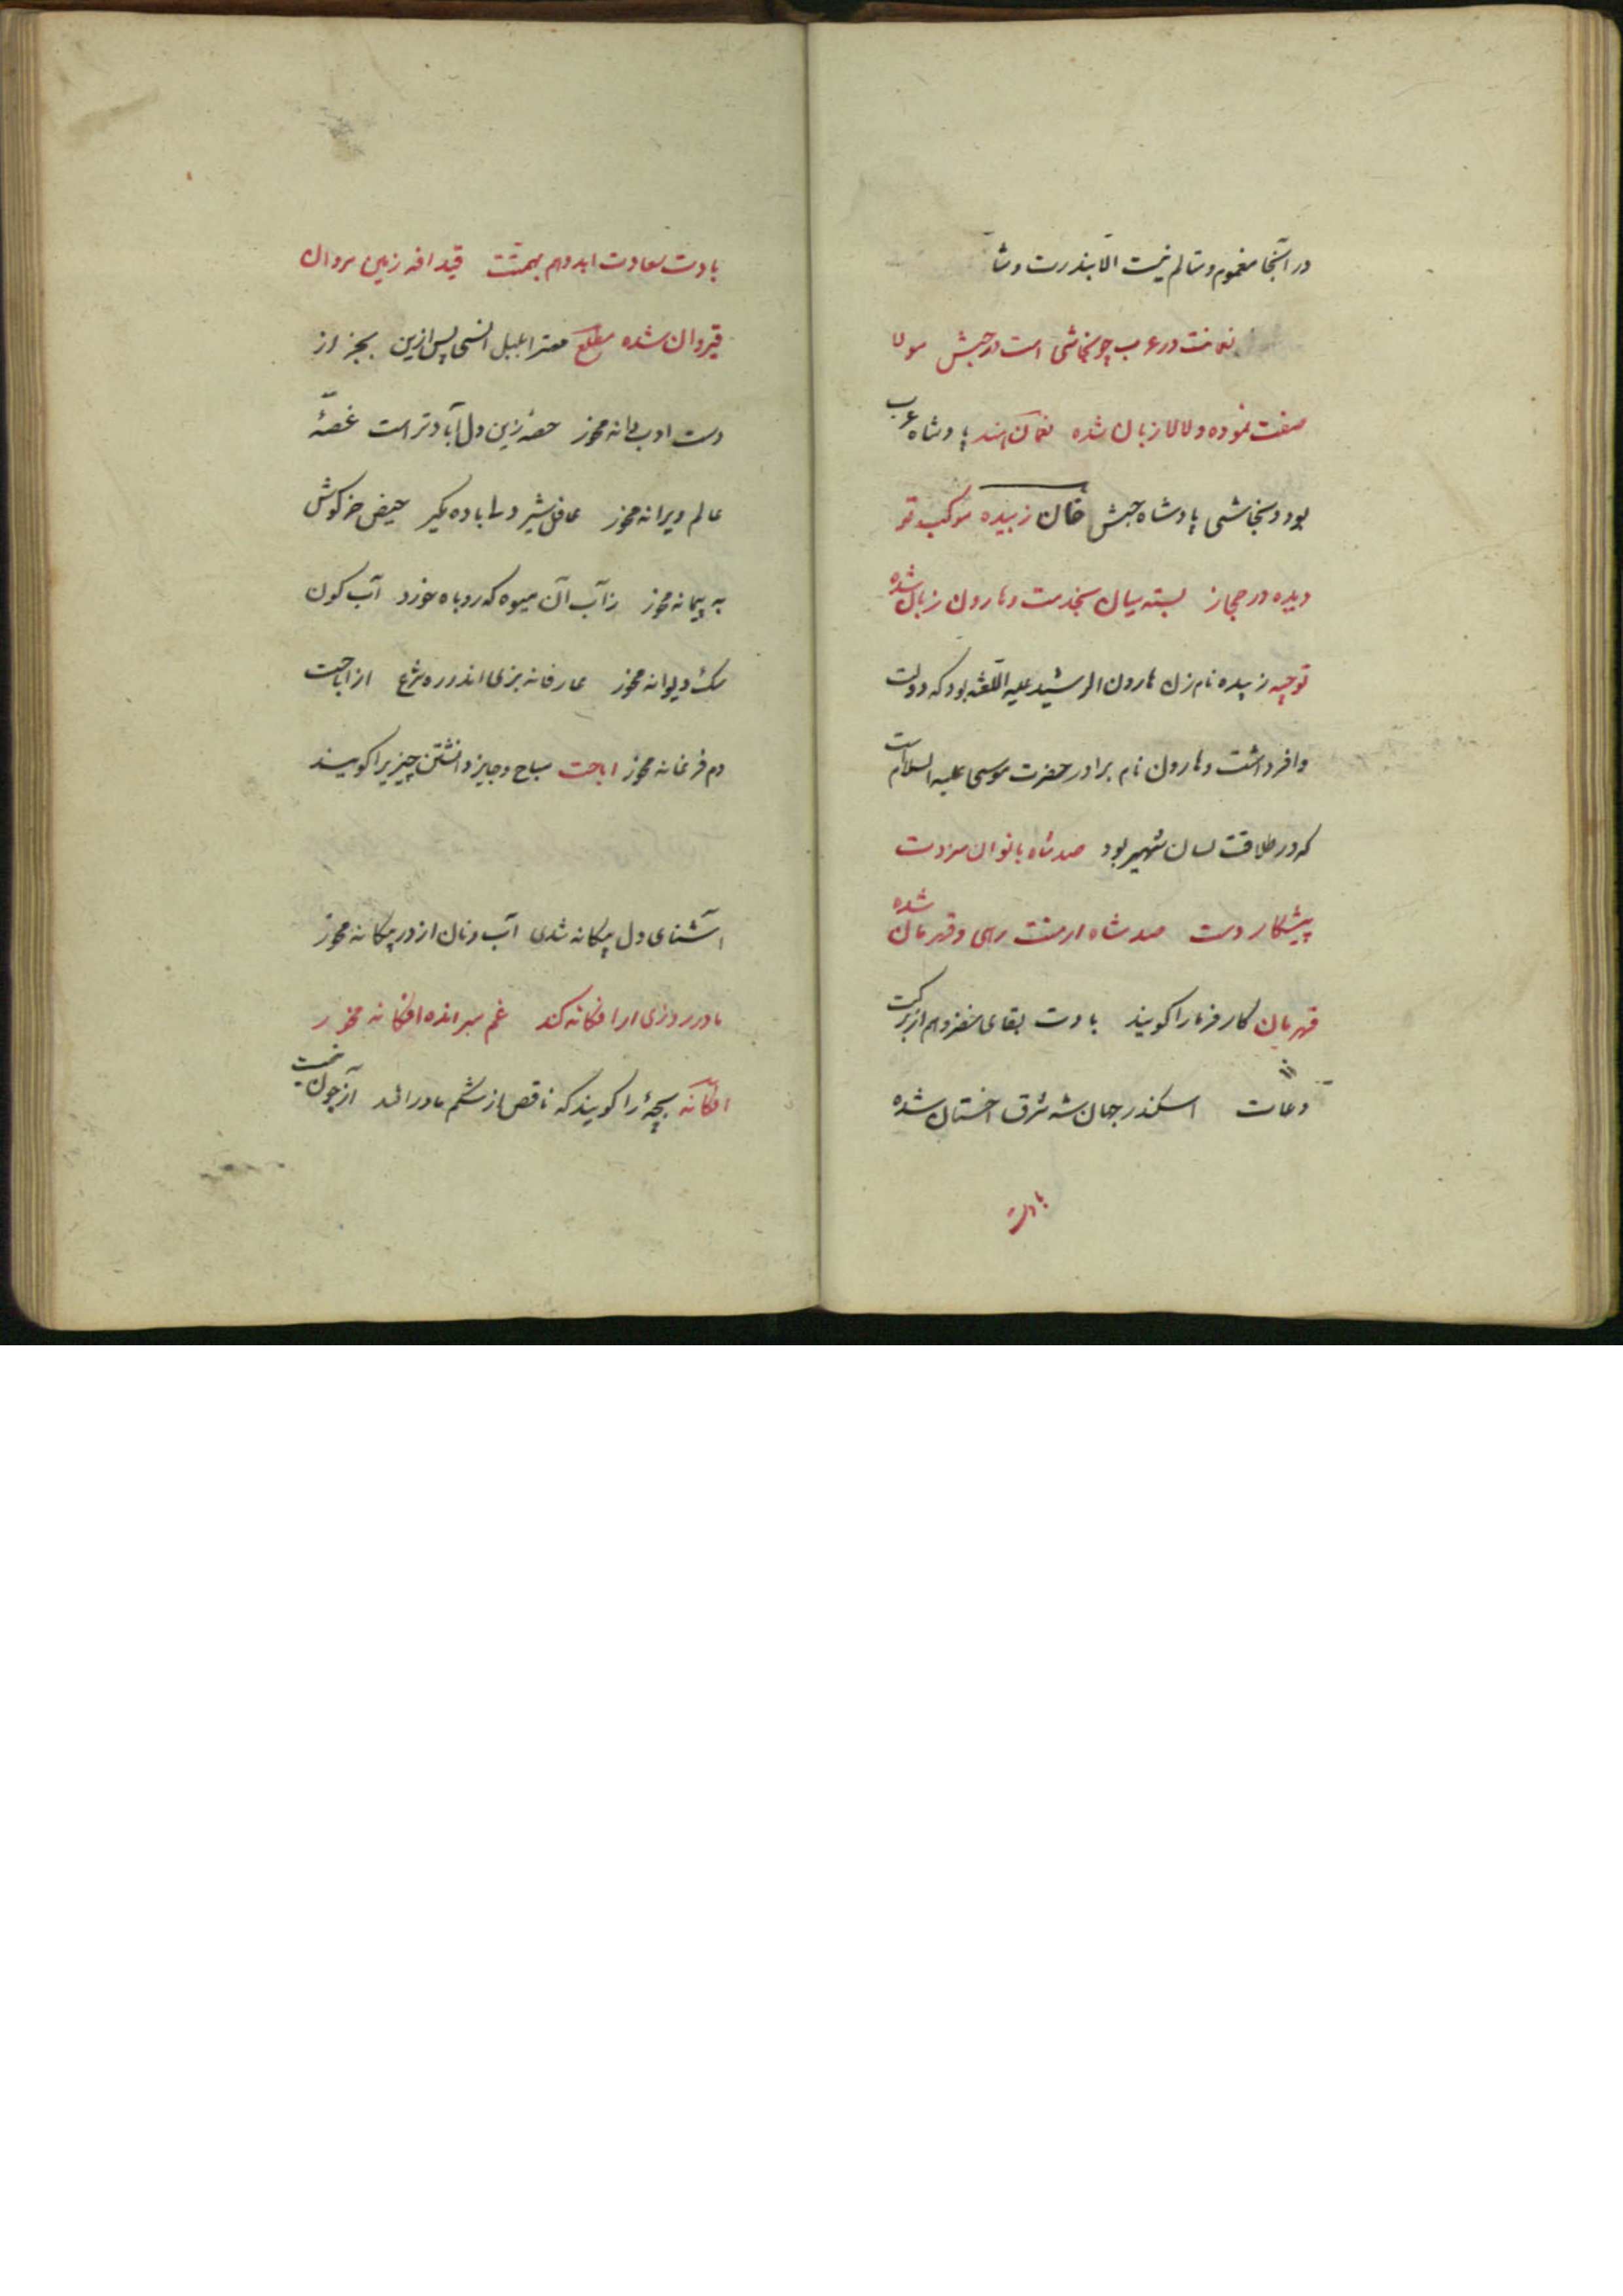 در آنجا مغموم و متالم نیست الا بندرت و شا
نعمانت در عرب چو نجاشی است در حبش مولا
صفت نموده و لالا زبان شده نعمان پادشاه عرب
بود و نجاشی پادشاه حبش خان زبیده موکب تو
دیده در حجاز بسته میان بخدمت و هارون زبان شده
توجیه زبیده نام زن هارون الرشید علیه اللعنه بود که دولت
وافر داشت و هارون نام برادر حضرت موسی علیه السلام است
که در طلاقت لسان شهیر بود صد شاه بانوان سزدت
پیشکار دست صد شاه ارمنت رهی و قهرمان شده
قهرمان کار فرما را کویند بادت بقای خضر و هم از برکت
دعات اسکندر جهان شه شرق اخستان شده
بادت
بادت سعادت ابد و هم بهمتت قیدافه زمین
قیروان شده مطلع پس ازین بجز از
دست ادب دانه مخور حصه زین دل آبادتر است غصهٔ
عالم ویرانه مخور غافل شیر دلا باده مگیر حیض خرگوش
به پیمانه مخور رز آب آن میوه که روباه خورد آب کون
سک دیوانه مخور عارفانه بزی اندر ره شرع از اباحت
دم فرغانه مخور اباحت مباح و جایز دانستن چیزیرا کویند
آشنای دل بیکانه شدی آب و نان از در بیکانه مخور
مادر روزی ار افکانه کند غم مبر انده افکانه مخور
افکانه بچهٔ را کویند که ناقص از شکم مادر افتد آز چون